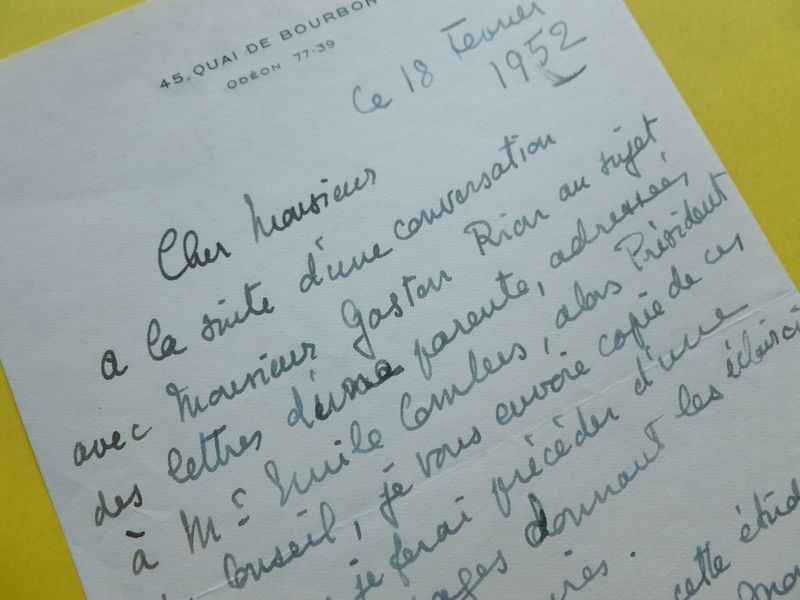 45, QUAI DE BOURBON
ODÉON 77-39
Ce 18 Fevrier
1952
Cher Monsieur
a la suite d'une conversation
avec Monsieur Gaston Riou au sujet
des lettres d'une parente, adressées,
à Mr Emile Combes, alors Président
Conseil, je vous envoie copie de ces
je ferai précéder d'une
donnant les éclairci
cette étud